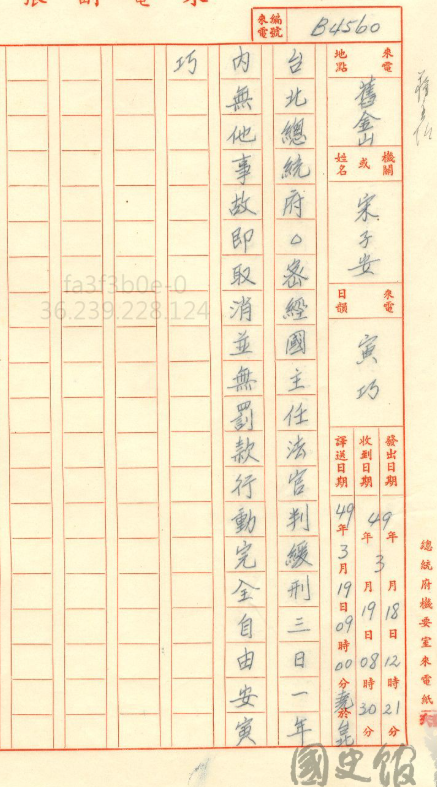 來電
編號
來電
B4560
來電
地點
舊金山
機關
或
姓名
宋子安
來電
日韻
寅巧
發出日期 49年3月18日12時21分
收到日期 49年3月19日08時30分
譯送日期 49年3月19日09時00分
總統府機要室來電紙
台北總統府○密經國主任法官判緩刑三日一年
內無他事故即取消並無罰款行動完全自由安寅
巧
fa3f3b0e-0
36.239.228.124
國史館